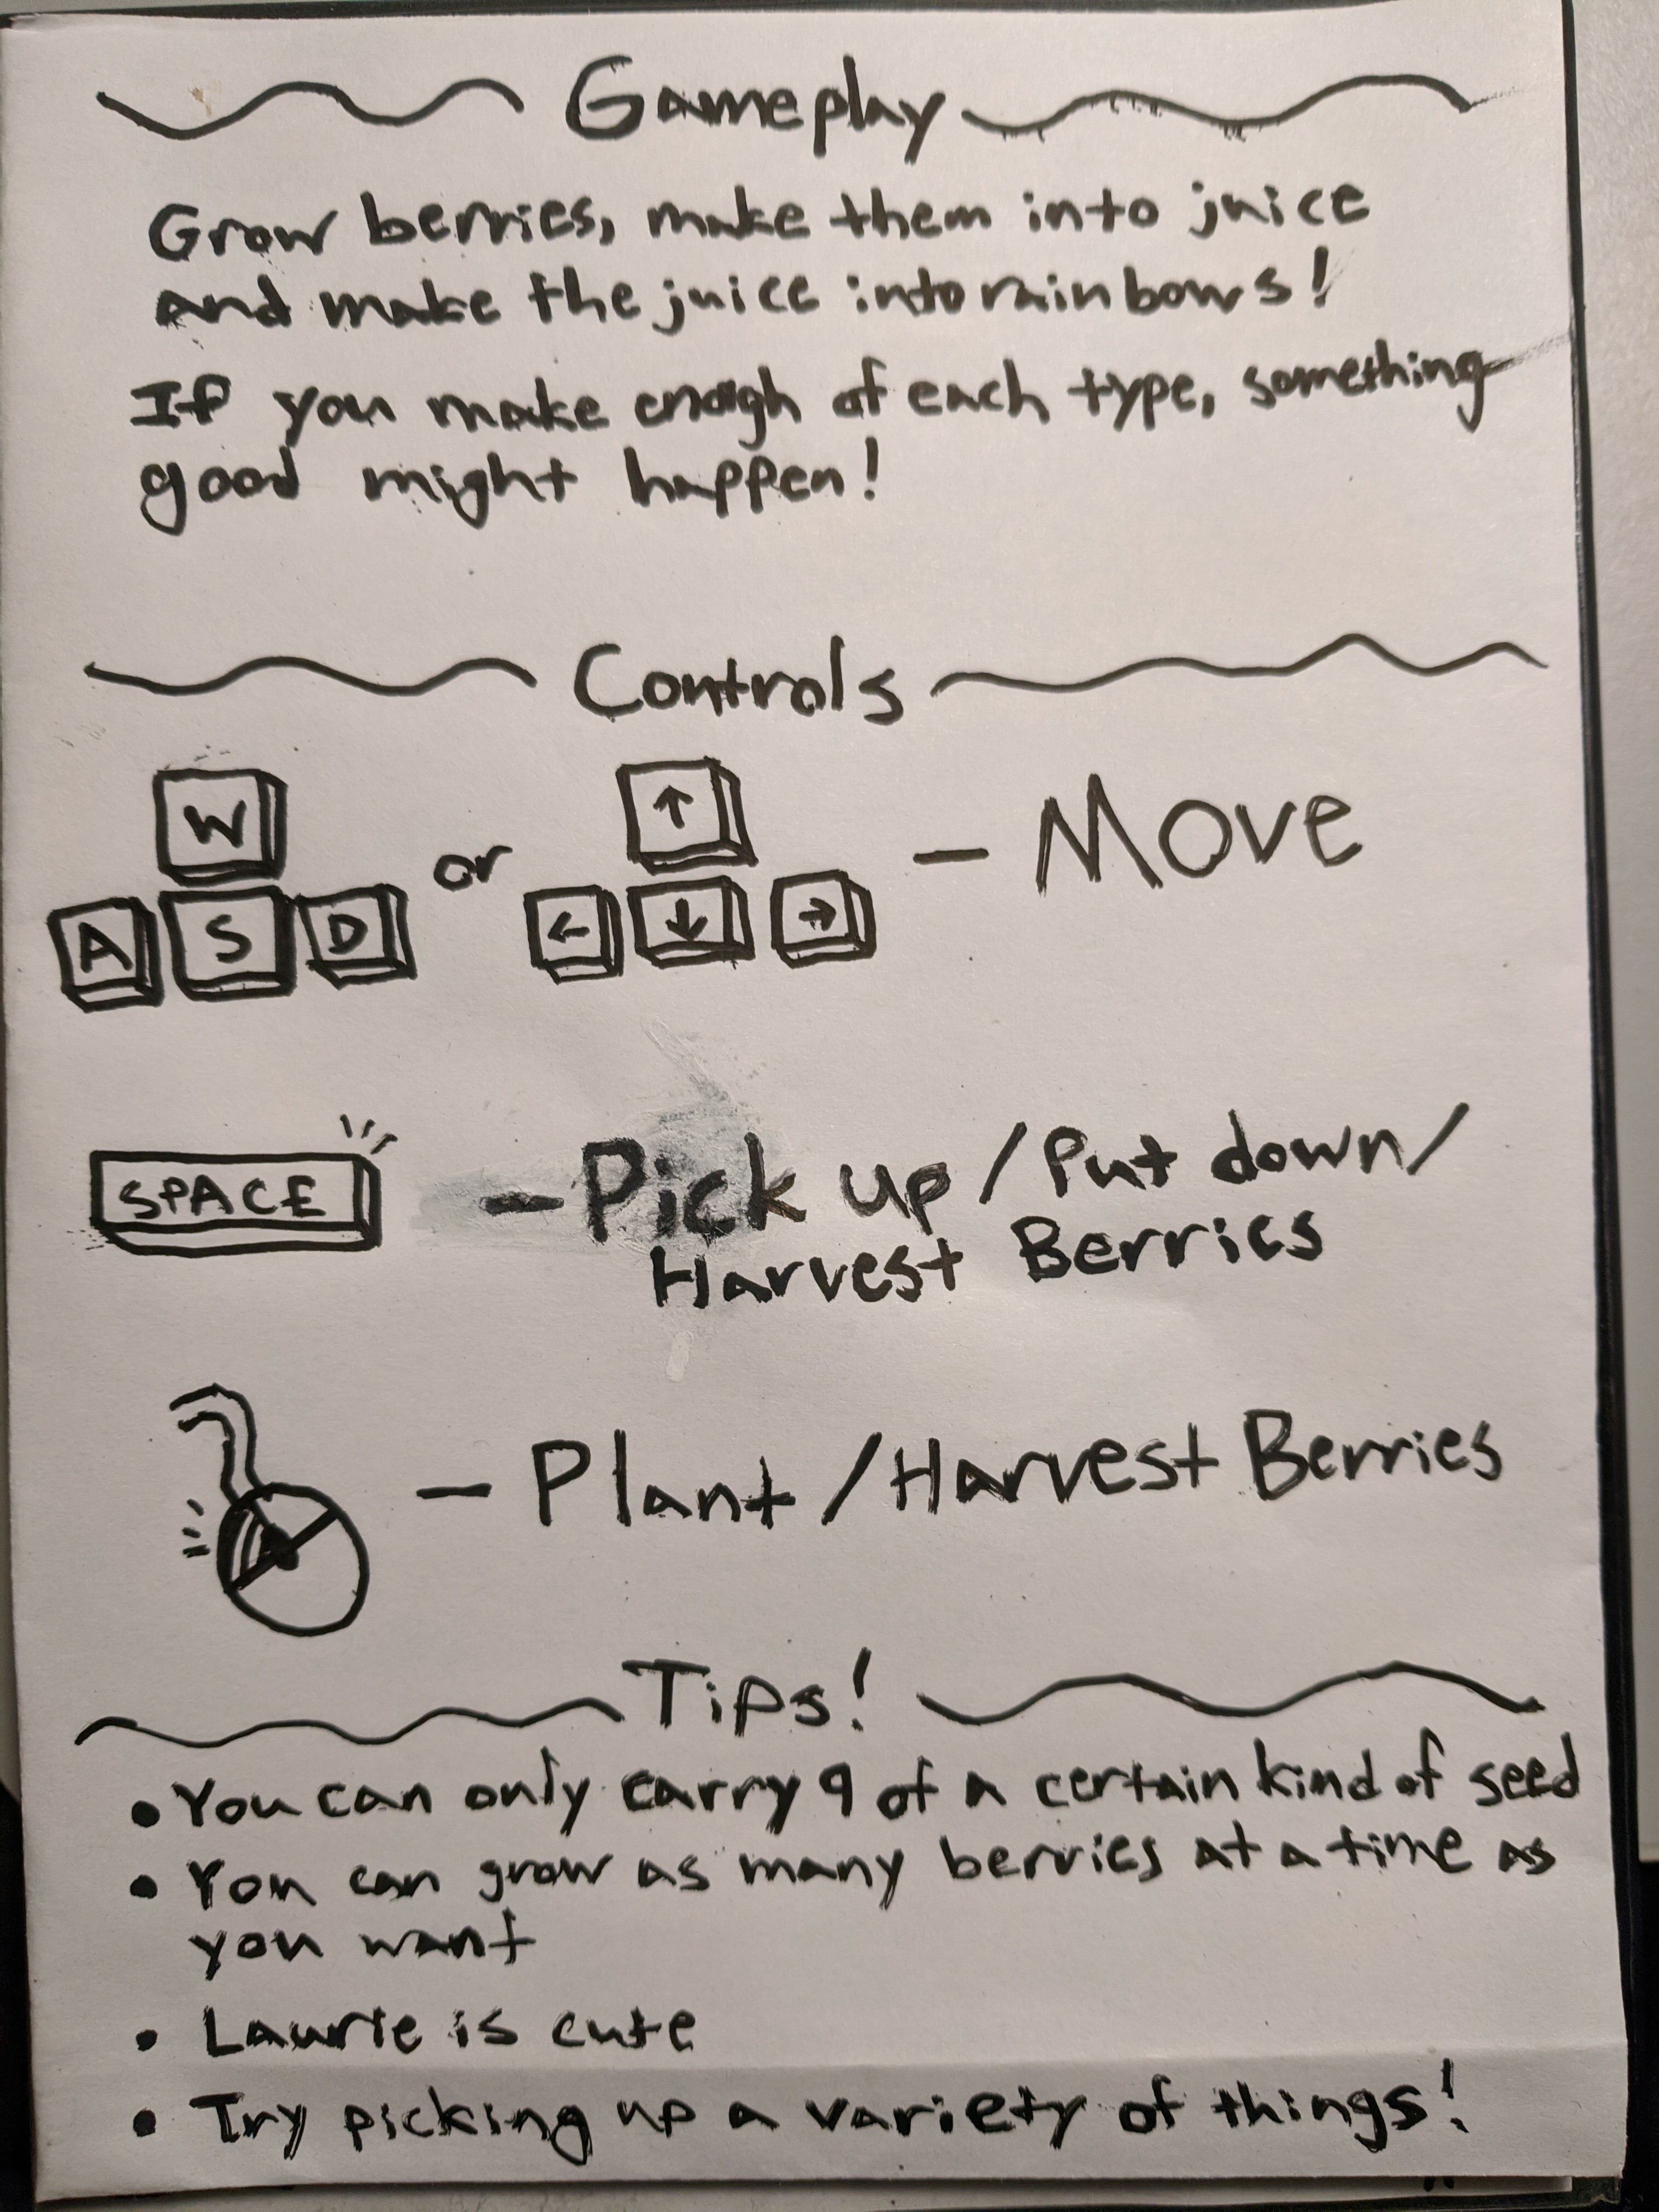 Gameplay
Grow berries, make them into juice
and make the juice into rainbows!
If you make enough of each type, something
good might happen!
Controls
W
↑
or
- Move
A S D
← ↓ →
SPACE
- Pick up / Put down /
Harvest Berries
- Plant / Harvest Berries
Tips!
• You can only carry 9 of a certain kind of seed
• You can grow as many berries at a time as
you want
• Laurie is cute
• Try picking up a variety of things!